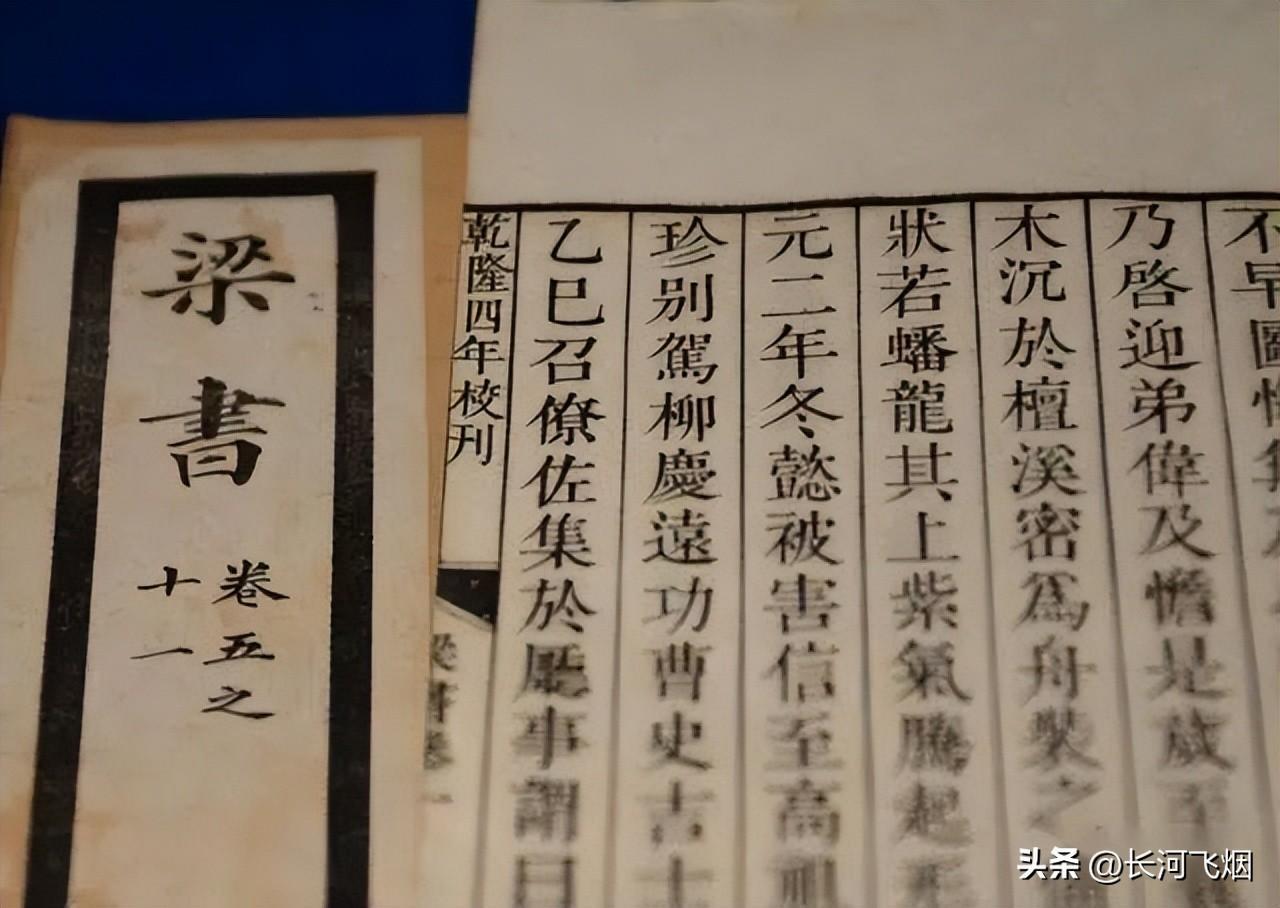 梁書
卷五之
十一
不早圖
乃啓迎弟偉及憺是歲至
木沉於檀溪密爲舟裝之
狀若蟠龍其上紫氣騰起
元二年冬懿被害信至高祖
珍别駕柳慶遠功曹史吉士
乙巳召僚佐集於廳事謂曰
乾隆四年校刊
梁書卷一
头条 @长河飞烟